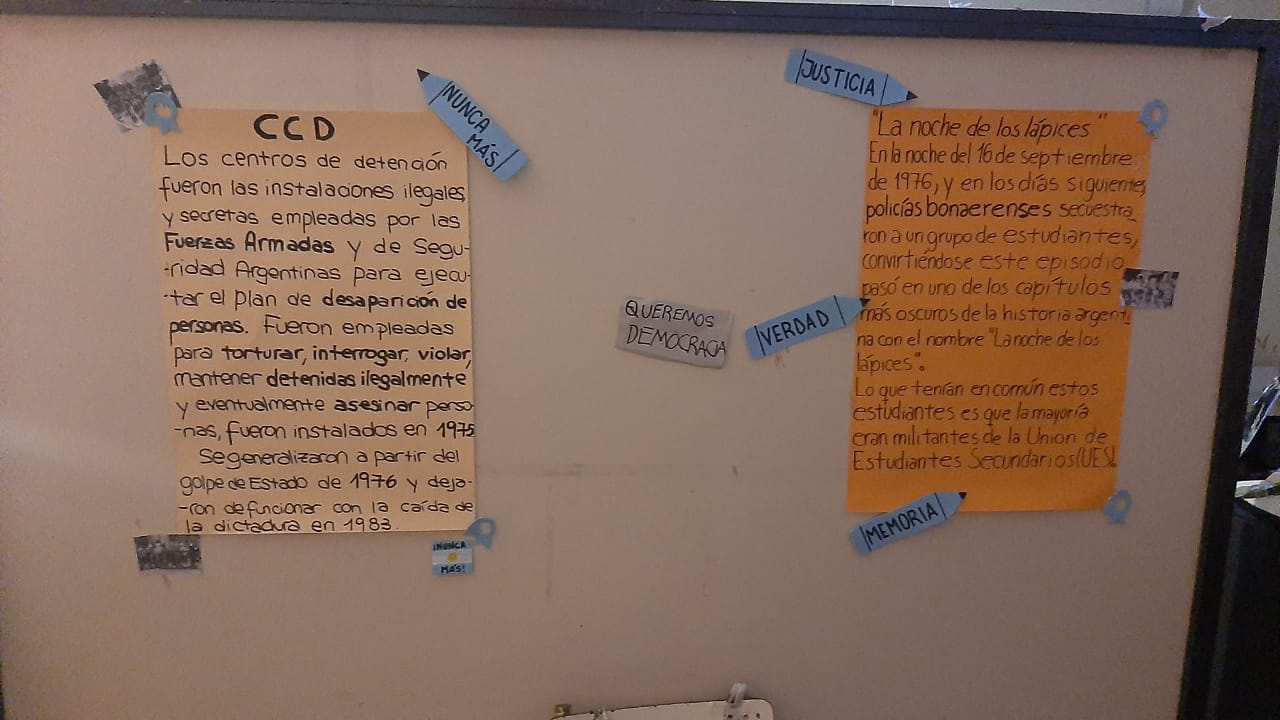 CCD
Los centros de detención
fueron las instalaciones ilegales
y secretas empleadas por las
Fuerzas Armadas y de Segu-
-ridad Argentinas para ejecu-
-tar el plan de desaparición de
personas. Fueron empleadas
para torturar, interrogar, violar,
mantener detenidas ilegalmente
y eventualmente asesinar perso-
-nas, fueron instalados en 1975
Se generalizaron a partir del
golpe de Estado de 1976 y deja-
-ron de funcionar con la caída de
la dictadura en 1983.
NUNCA
MÁS
¡NUNCA
MÁS!
QUEREMOS
DEMOCRACIA
JUSTICIA
VERDAD
"La noche de los lápices"
En la noche del 16 de septiembre
de 1976, y en los días siguientes,
policías bonaerenses secuestra
ron a un grupo de estudiantes,
convirtiéndose este episodio
pasó en uno de los capítulos
más oscuros de la historia argenti
na con el nombre "La noche de los
lápices".
Lo que tenían en común estos
estudiantes es que la mayoría
eran militantes de la Union de
Estudiantes Secundarios (UES).
MEMORIA